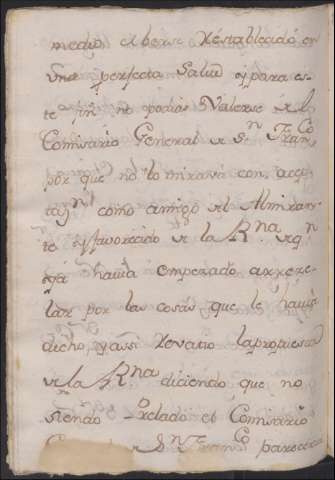 medio el berse Restablecido en
Una perfecta Salud y para es
te fin no podia Valerse de el
Comisario General de Sn Franco
por que no lo mirava con
como amigo del Almiran
te y favorecido de la Rna de qn
ya havia empezado a rreze
lar por las cosas que le havia
dicho, y assi Revatio la propuesta
de la Rna diciendo que no
siendo Prelado el Comisario
de Sn Franco pareceria